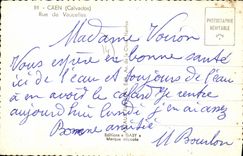 88 - CAEN (Calvados)
Rue de Vaucelles
PHOTOGRAPHIE
VÉRITABLE
Madame Voiron
Vous espère en bonne santé
ici de l'eau et toujours de l'eau
à en avoir le cafard Je rentre
aujourd'hui lundi j'en ai assez
Bonne amitié
M Bourlon
Editions "GABY"
Marque déposée